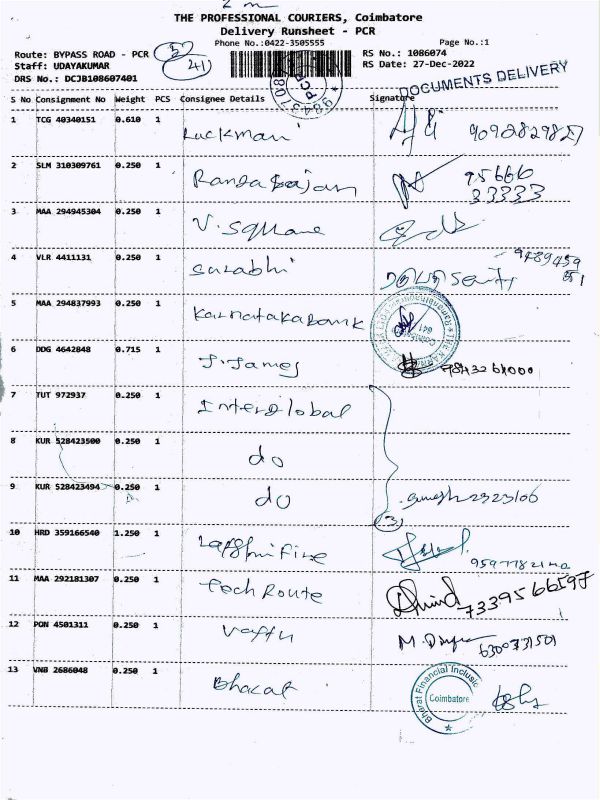 2 m
THE PROFESSIONAL COURIERS, Coimbatore
Delivery Runsheet - PCR
Phone No.:0422-3505555 Page No.:1
Route: BYPASS ROAD - PCR RS No.: 1086074
Staff: UDAYAKUMAR 41 RS Date: 27-Dec-2022
DRS No.: DCJB108607401
PCR
DOCUMENTS DELIVERY
S No Consignment No Weight PCS Consignee Details Signature
1 TCG 40340151 0.610 1 Luckmani
2 SLM 310309761 0.250 1 Rangarajan 95666
33333
3 MAA 294945304 0.250 1 V. Square
4 VLR 4411131 0.250 1 Sarabhi 9489459
5 MAA 294837993 0.250 1 Karnataka Bank
6 DDG 4642848 0.715 1 J. James
7 TUT 972937 0.250 1 Interglobal
8 KUR 528423500 0.250 1 do
9 KUR 528423494 0.250 1 do
(3)
10 HRD 359166540 1.250 1
11 MAA 292181307 0.250 1 Tech Route 7339566597
12 PON 4501311 0.250 1
13 VNB 2686048 0.250 1 Bharat
Bharat Financial Inclusion
Coimbatore